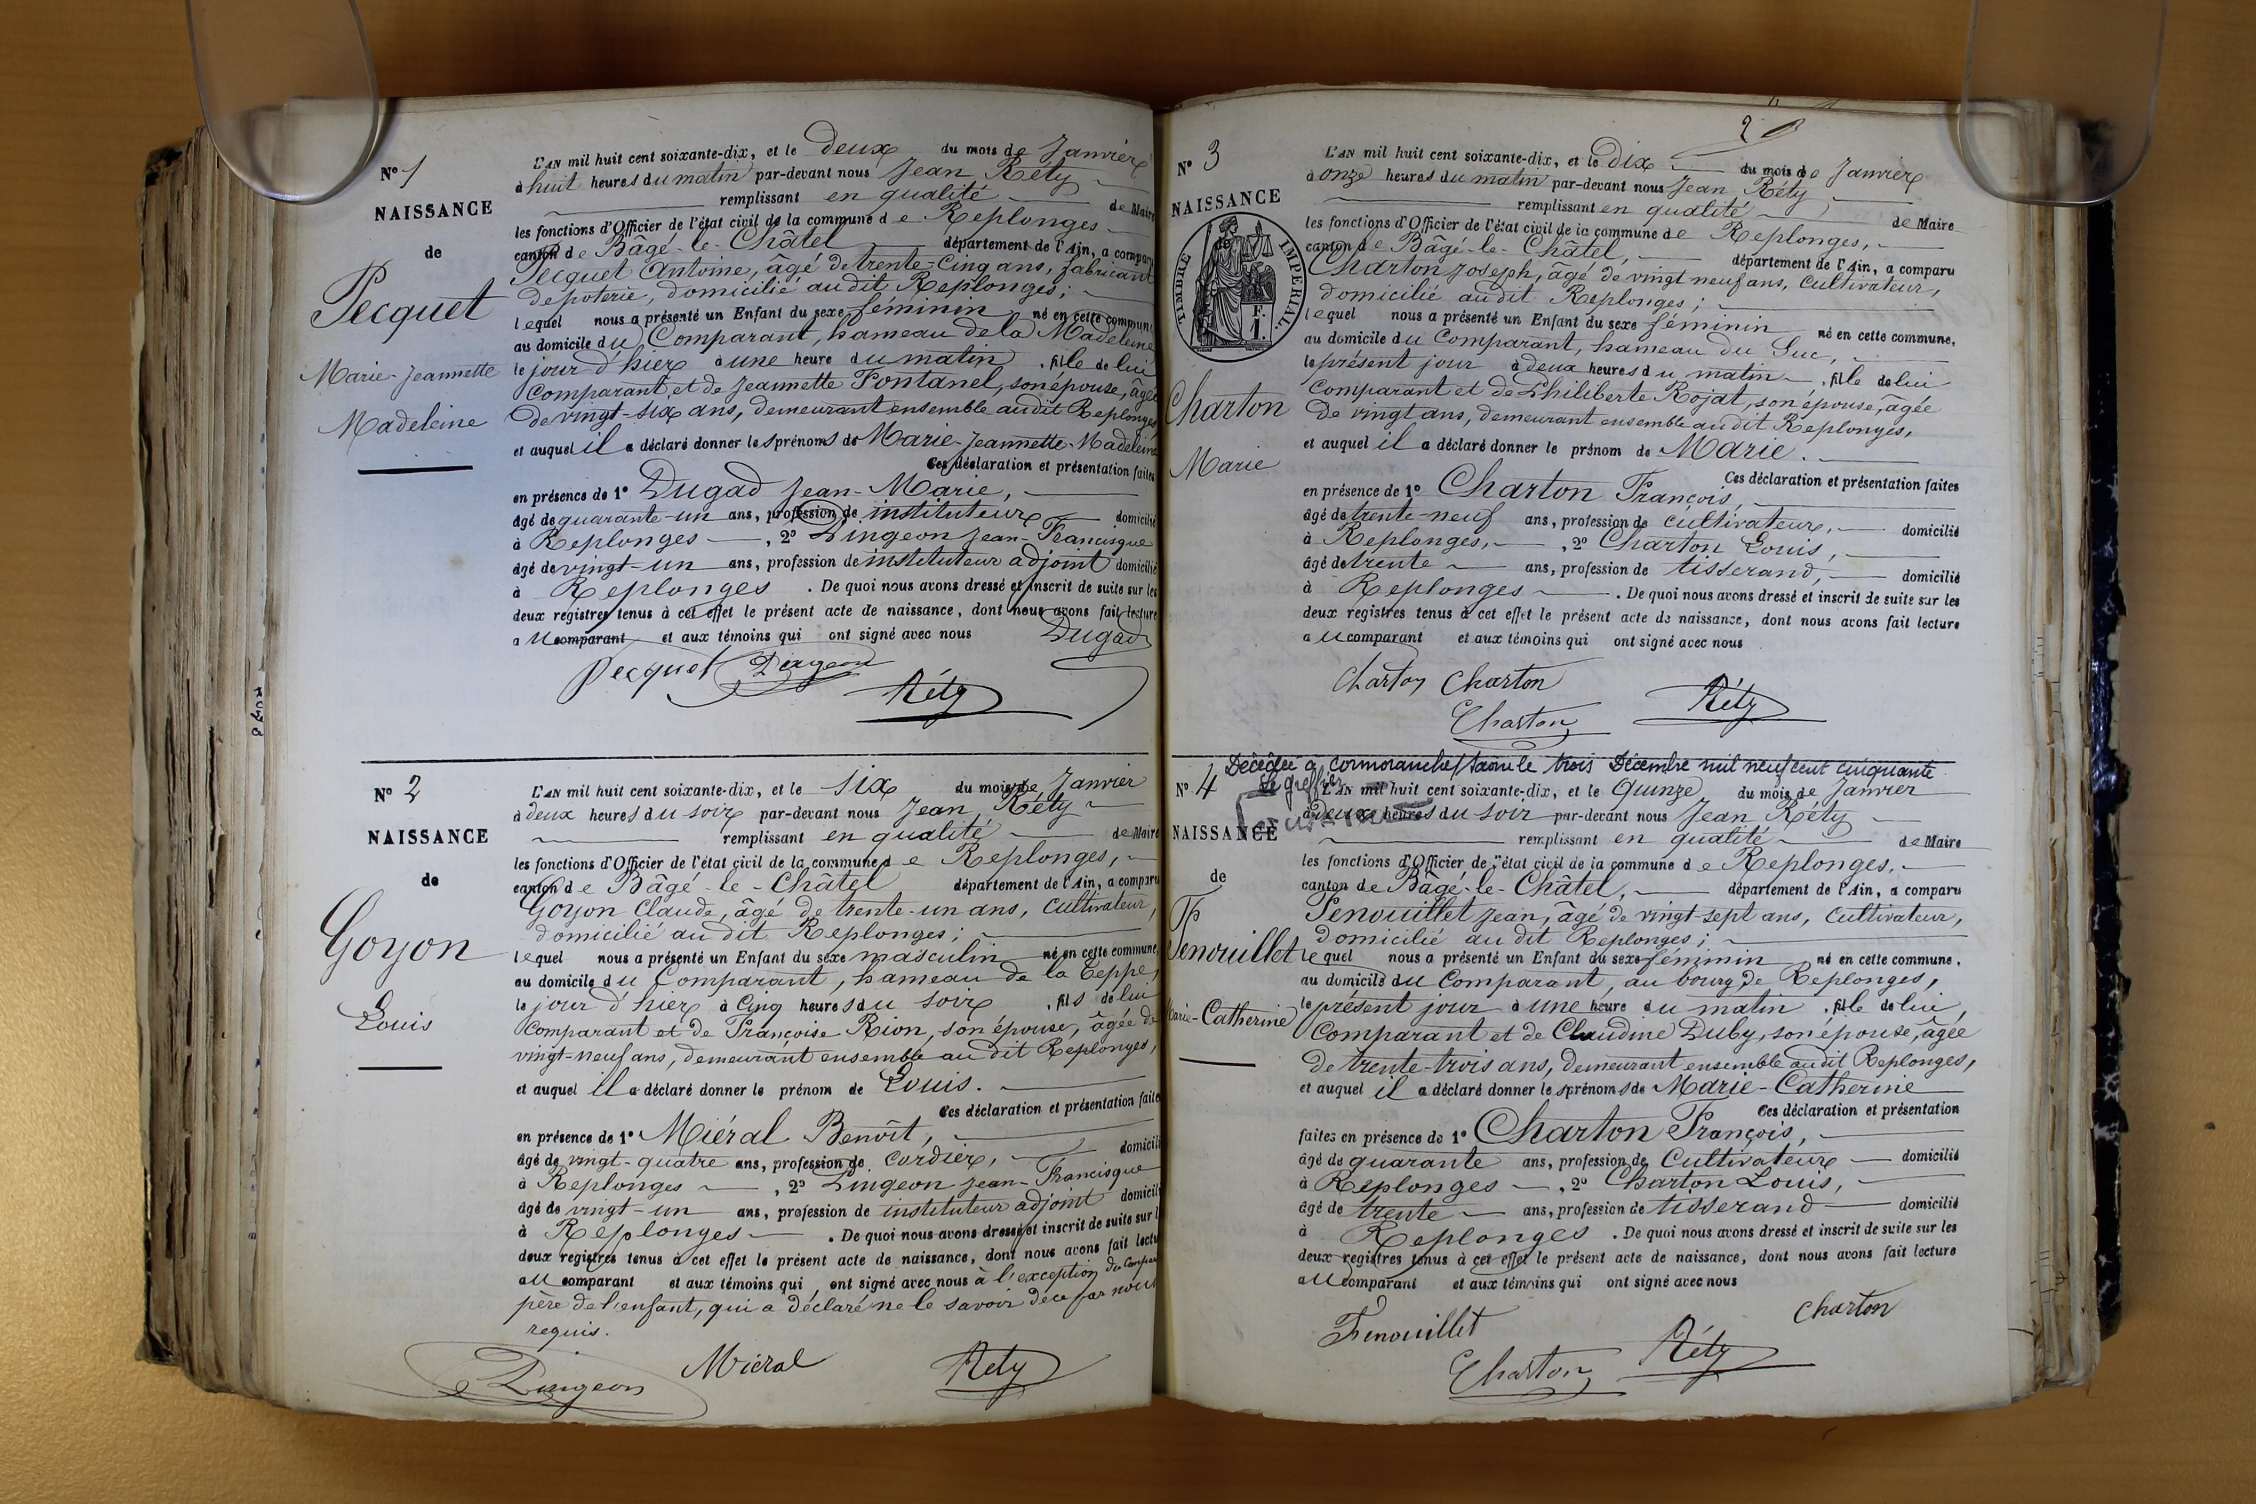 N° 1
NAISSANCE
de
Pecquet
Marie-Jeannette
Madeleine
L'AN mil huit cent soixante-dix, et le deux du mois de Janvier
à huit heures du matin par-devant nous Jean Réty
remplissant en qualité de Maire
les fonctions d'Officier de l'état civil de la commune de Replonges
canton de Bâgé-le-Châtel département de l'Ain, a comparu
Pecquet Antoine, âgé de trente-cinq ans, fabricant
de poterie, domicilié au dit Replonges;
lequel nous a présenté un Enfant du sexe féminin né en cette commune
au domicile du Comparant, hameau de la Madeleine
le jour d'hier à une heure du matin, fille de lui
Comparant et de Jeannette Fontanel, son épouse, âgée
de vingt-six ans, demeurant ensemble au dit Replonges
et auquel il a déclaré donner les prénoms de Marie-Jeannette-Madeleine
Ces déclaration et présentation faites
en présence de 1° Dugad Jean-Marie,
âgé de quarante-un ans, profession de instituteur domicilié
à Replonges, 2° Dingeon Jean-Francisque
âgé de vingt-un ans, profession de instituteur adjoint domicilié
à Replonges. De quoi nous avons dressé et inscrit de suite sur les
deux registres tenus à cet effet le présent acte de naissance, dont nous avons fait lecture
au comparant et aux témoins qui ont signé avec nous
Dugad
Pecquet Dingeon
Réty
N° 2
NAISSANCE
de
Goyon
Louis
L'AN mil huit cent soixante-dix, et le six du mois de Janvier
à deux heures du soir par-devant nous Jean Réty
remplissant en qualité de Maire
les fonctions d'Officier de l'état civil de la commune de Replonges,
canton de Bâgé-le-Châtel département de l'Ain, a comparu
Goyon Claude, âgé de trente-un ans, cultivateur,
domicilié au dit Replonges;
lequel nous a présenté un Enfant du sexe masculin né en cette commune,
au domicile du Comparant, hameau de la Teppe,
le jour d'hier à Cinq heures du soir, fils de lui
Comparant et de Françoise Rion, son épouse, âgée de
vingt-neuf ans, demeurant ensemble au dit Replonges,
et auquel il a déclaré donner le prénom de Louis.
Ces déclaration et présentation faites
en présence de 1° Miéral Benoît,
âgé de vingt-quatre ans, profession de cordier, domicilié
à Replonges, 2° Dingeon Jean-Francisque
âgé de vingt-un ans, profession de instituteur adjoint domicilié
à Replonges. De quoi nous avons dressé et inscrit de suite sur l
deux registres tenus à cet effet le présent acte de naissance, dont nous avons fait lectu
au comparant et aux témoins qui ont signé avec nous à l'exception du Compar
père de l'enfant, qui a déclaré ne le savoir de ce par nous
requis.
Dingeon Miéral Réty
2
N° 3
NAISSANCE
TIMBRE IMPERIAL
1 F.
Charton
Marie
L'AN mil huit cent soixante-dix, et le dix du mois de Janvier
à onze heures du matin par-devant nous Jean Réty
remplissant en qualité de Maire
les fonctions d'Officier de l'état civil de la commune de Replonges,
canton de Bâgé-le-Châtel, département de l'Ain, a comparu
Charton Joseph, âgé de vingt neuf ans, cultivateur,
domicilié au dit Replonges;
lequel nous a présenté un Enfant du sexe féminin né en cette commune,
au domicile du Comparant, hameau du Guc,
le présent jour à deux heures du matin, fille de lui
Comparant et de Philiberte Rojat, son épouse, âgée
de vingt ans, demeurant ensemble au dit Replonges,
et auquel il a déclaré donner le prénom de Marie.
Ces déclaration et présentation faites
en présence de 1° Charton François,
âgé de trente-neuf ans, profession de cultivateur, domicilié
à Replonges, 2° Charton Louis,
âgé de trente ans, profession de tisserand, domicilié
à Replonges. De quoi nous avons dressé et inscrit de suite sur les
deux registres tenus à cet effet le présent acte de naissance, dont nous avons fait lecture
au comparant et aux témoins qui ont signé avec nous
Charton Charton
Charton Réty
Décédée à Cormoranche/Saone le trois Décembre mil neuf cent cinquante
Le greffier
N° 4
NAISSANCE
de
Fenouillet
Marie-Catherine
L'AN mil huit cent soixante-dix, et le Quinze du mois de Janvier
à deux heures du soir par-devant nous Jean Réty
remplissant en qualité de Maire
les fonctions d'Officier de l'état civil de la commune de Replonges,
canton de Bâgé-le-Châtel, département de l'Ain, a comparu
Fenouillet Jean, âgé de vingt-sept ans, cultivateur,
domicilié au dit Replonges;
lequel nous a présenté un Enfant du sexe féminin né en cette commune,
au domicile du Comparant, au bourg de Replonges,
le présent jour à une heure du matin, fille de lui,
Comparant et de Claudine Duby, son épouse, âgée
de trente-trois ans, demeurant ensemble au dit Replonges,
et auquel il a déclaré donner les prénoms de Marie-Catherine
Ces déclaration et présentation
faites en présence de 1° Charton François,
âgé de quarante ans, profession de Cultivateur domicilié
à Replonges, 2° Charton Louis,
âgé de trente ans, profession de tisserand domicilié
à Replonges. De quoi nous avons dressé et inscrit de suite sur les
deux registres tenus à cet effet le présent acte de naissance, dont nous avons fait lecture
au comparant et aux témoins qui ont signé avec nous
Fenouillet Charton
Charton Réty